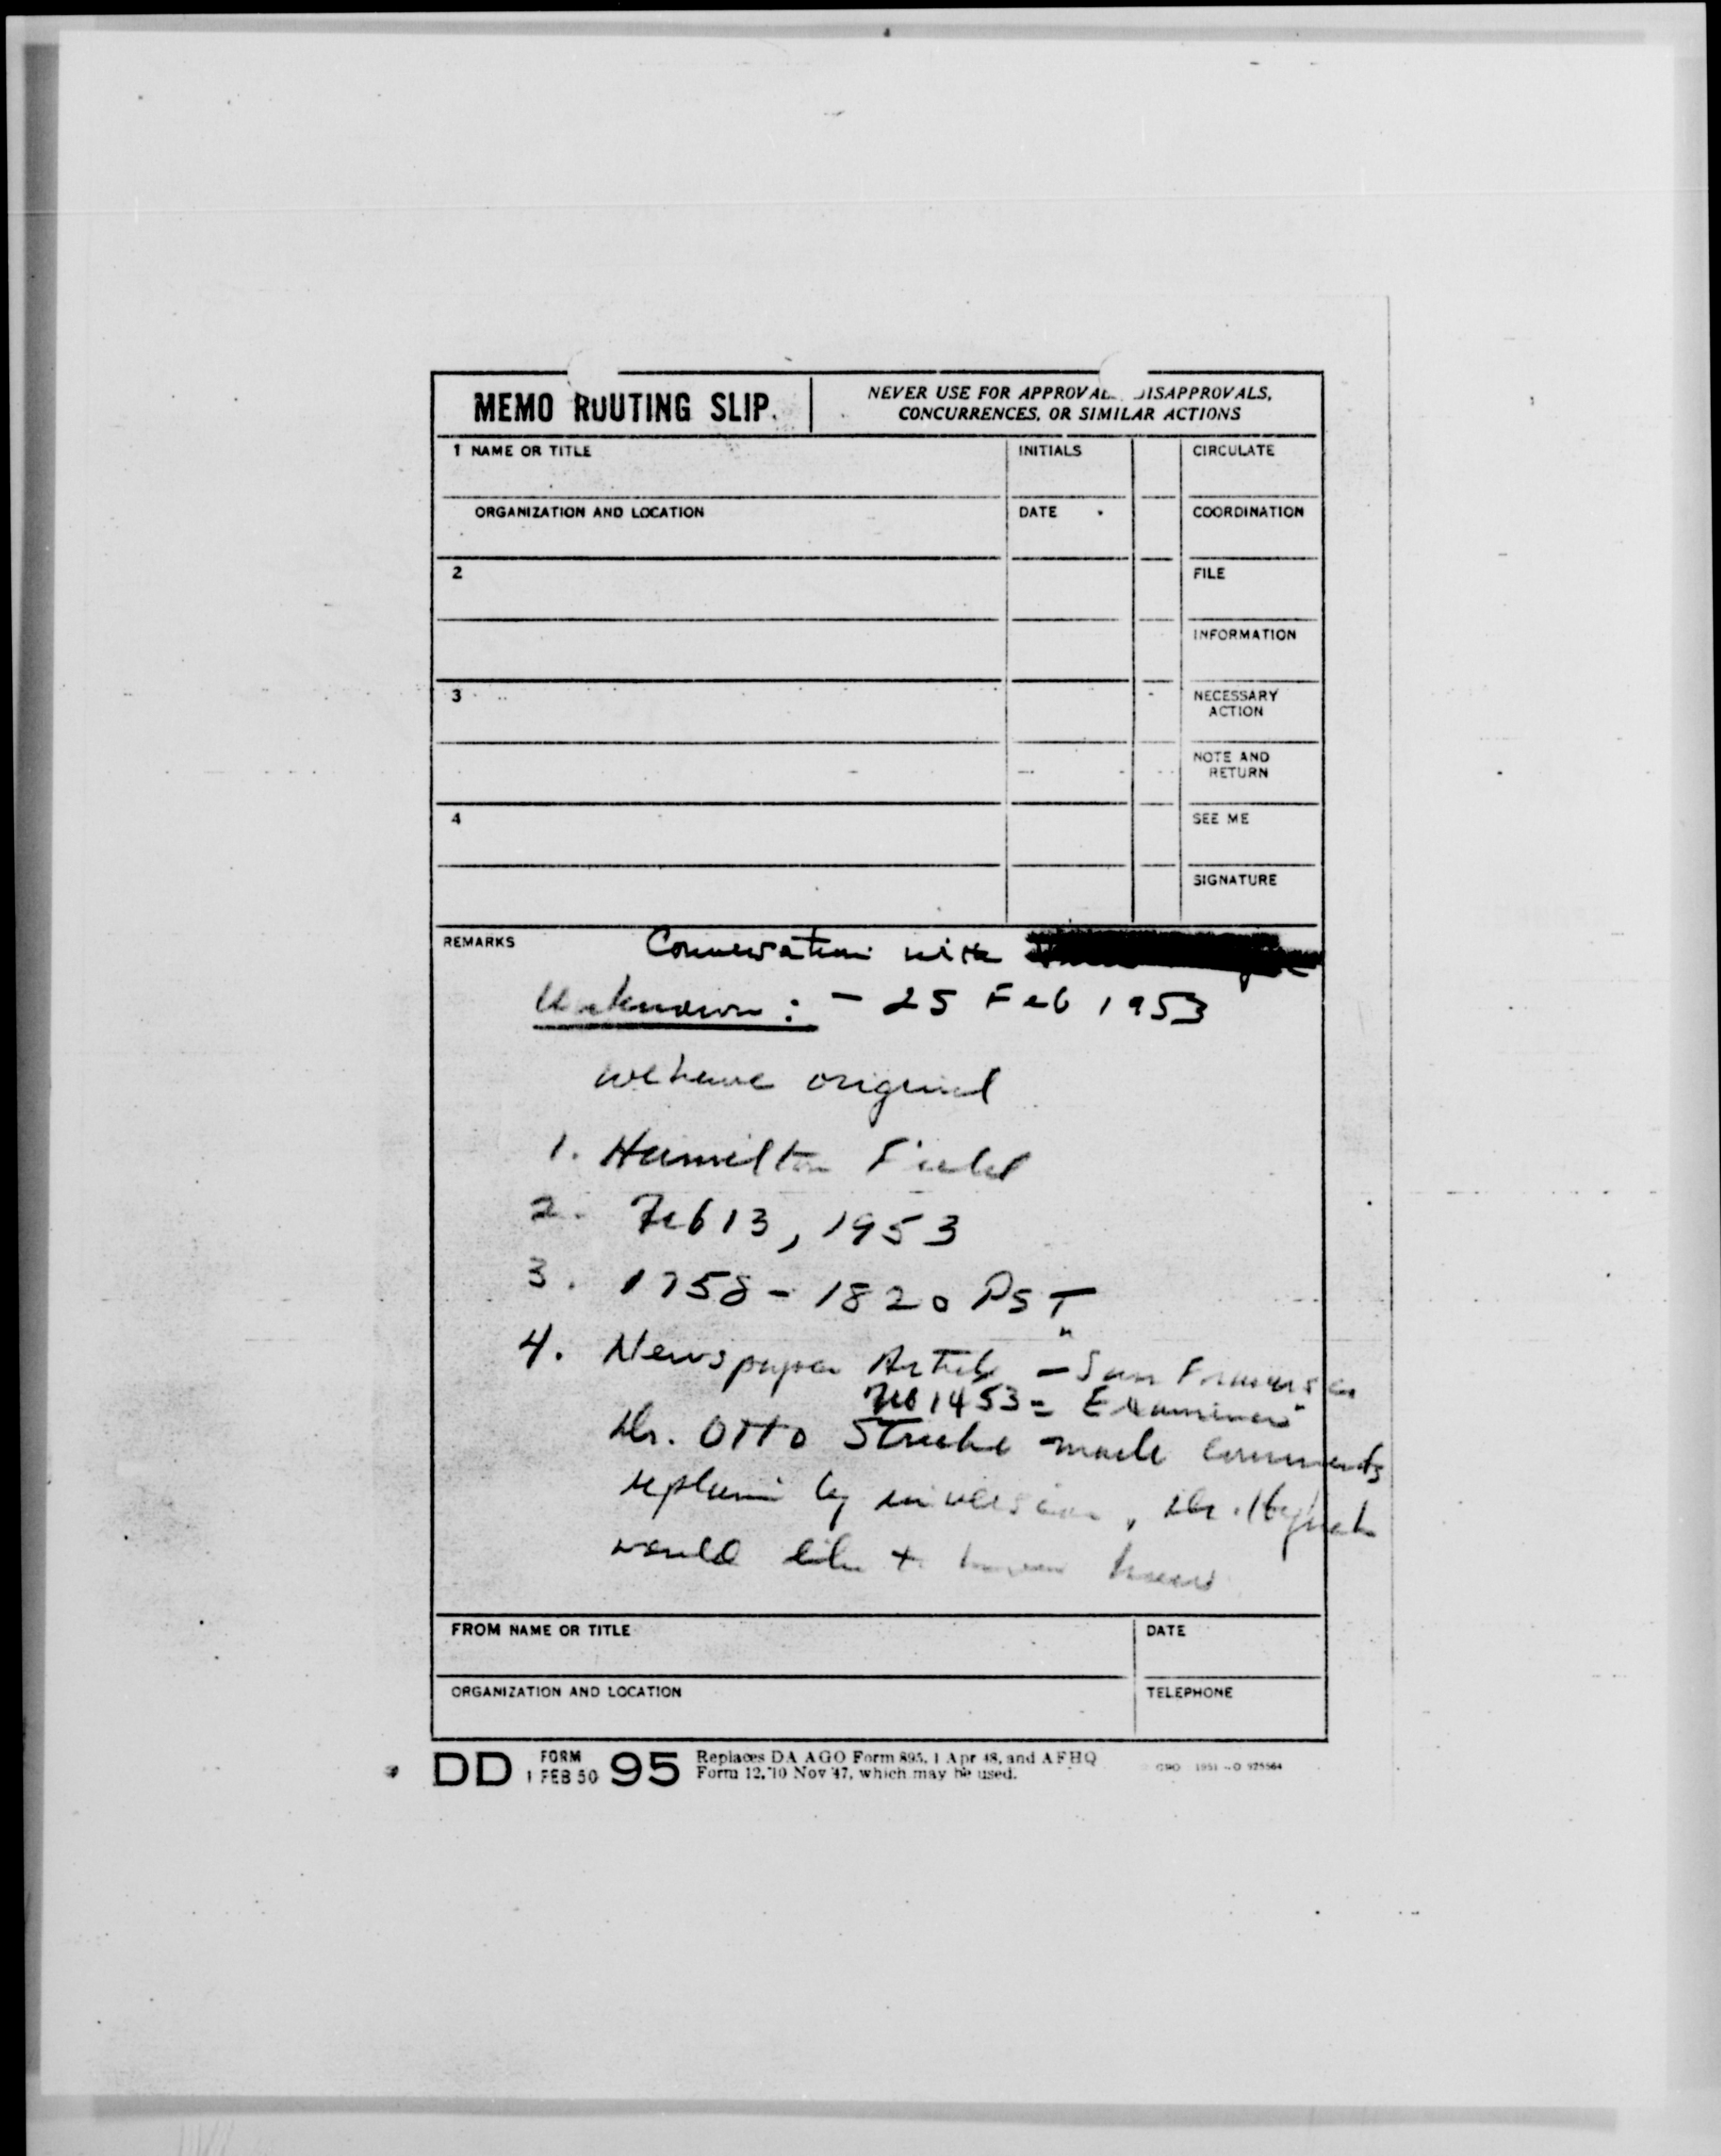 MEMO ROUTING SLIP
NEVER USE FOR APPROVAL DISAPPROVALS,
CONCURRENCES, OR SIMILAR ACTIONS
1 NAME OR TITLE
INITIALS
CIRCULATE
ORGANIZATION AND LOCATION
DATE
COORDINATION
2
FILE
INFORMATION
3
NECESSARY
ACTION
NOTE AND
RETURN
4
SEE ME
SIGNATURE
REMARKS
Conversation with
Unknown : - 25 Feb 1953
we have original
1. Hamilton Field
2. Feb 13, 1953
3. 1758 - 1820 PST
4. Newspaper Article - "San Francisco
Feb 14 53 = Examiner"
Dr. Otto Struve made comments
by inversion, Dr. Hynek
would like to know
FROM NAME OR TITLE
DATE
ORGANIZATION AND LOCATION
TELEPHONE
DD FORM 1 FEB 50 95 Replaces DA AGO Form 895, 1 Apr 48, and AFHQ
Form 12, 10 Nov 47, which may be used.
GPO 1951 - O 925564